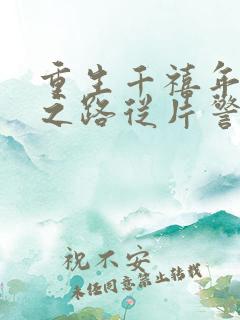 重生千禧年
之路从片警
祝不安
未经同意禁止转载